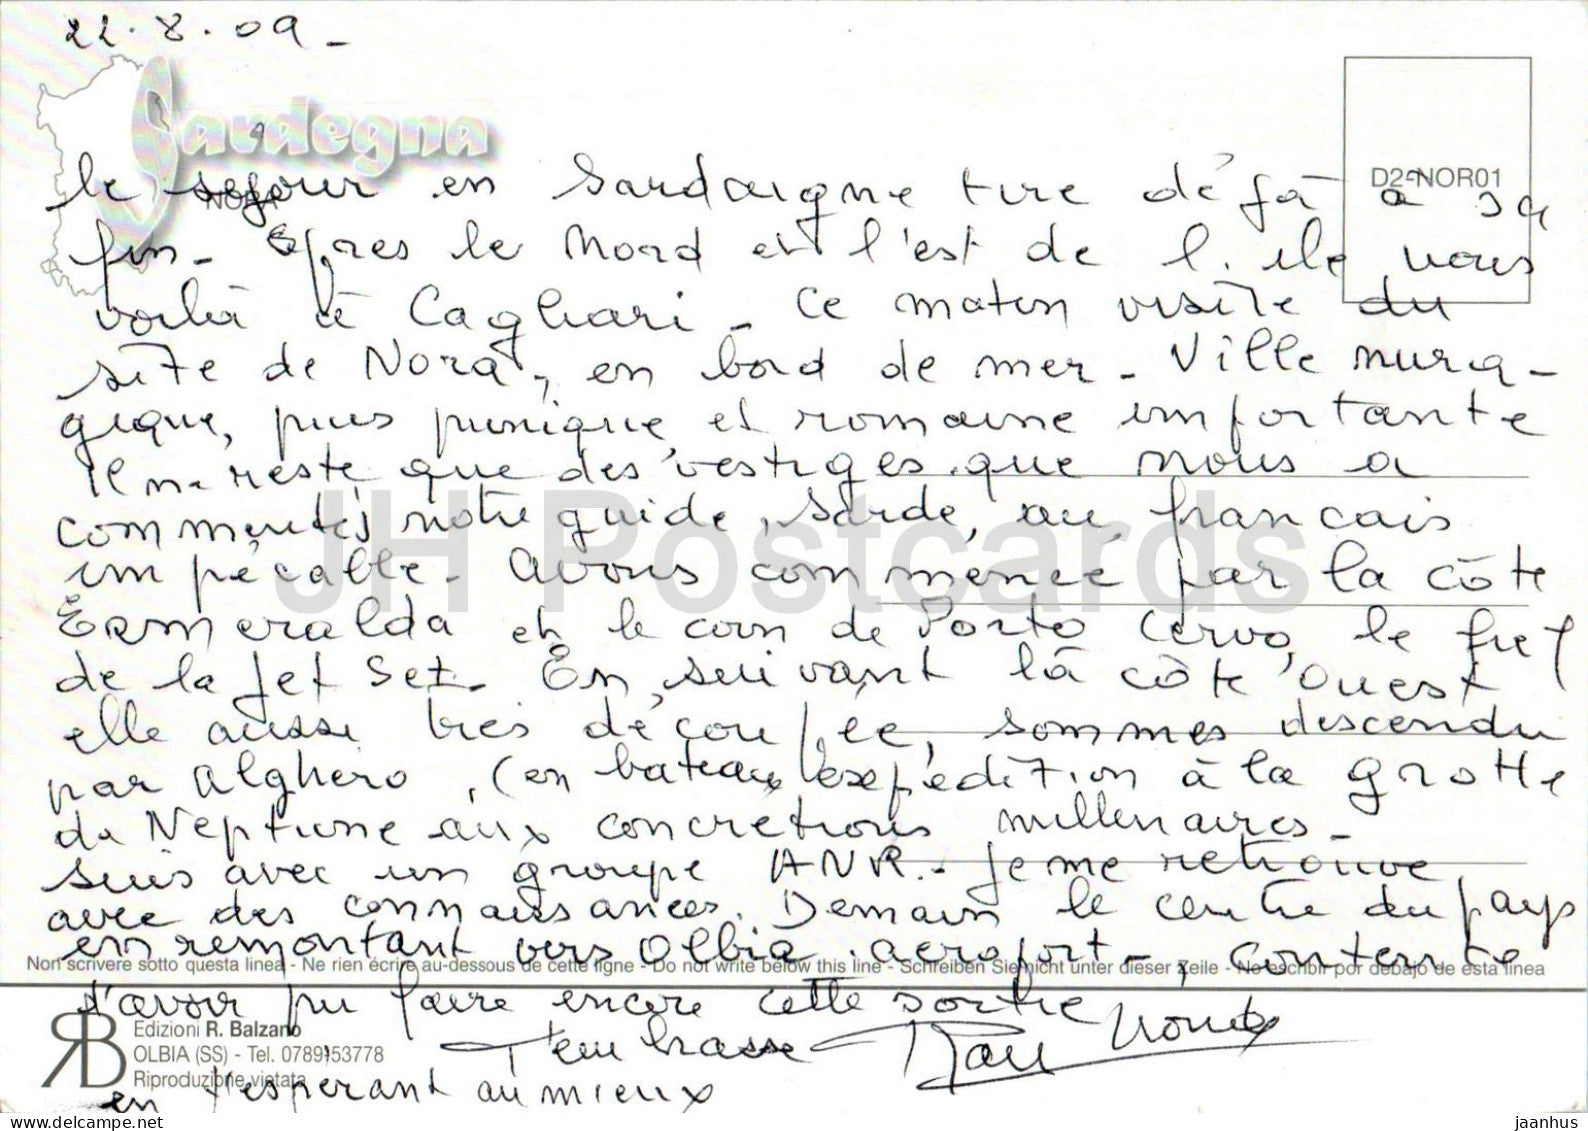 22.8.09 -
Sardegna
NORA
D2-NOR01
le séjour en Sardaigne tire déjà à sa
fin - Après le Nord et l'est de l'ile nous
voilà à Cagliari - Ce matin visite du
site de Nora, en bord de mer - Ville nura-
gique, puis punique et romaine importante
Il n'reste que des vestiges que nous a
commentés notre guide, sarde, au francais
impécable - Avons commencé par la côte
Esmeralda et le coin de Porto Cervo, le fief
de la Jet Set - En suivant la côte Ouest
elle aussi très découpée, sommes descendu
par Alghero, (en bateau expédition à la grotte
de Neptune aux concretions millenaires -
suis avec un groupe ANR - Je me retrouve
avec des connaissances. Demain le centre du pays
en remontant vers Olbia aéroport - Contente
Non scrivere sotto questa linea - Ne rien écrire au-dessous de cette ligne - Do not write below this line - Schreiben Sie nicht unter dieser Zeile - No escribir por debajo de esta linea
d'avoir pu faire encore cette sortie
RB
Edizioni R. Balzano
OLBIA (SS) - Tel. 0789/53778
Riproduzione vietata
T'embrasse
en t'espérant au mieux
JH Postcards
jaanhus
delcampe.net